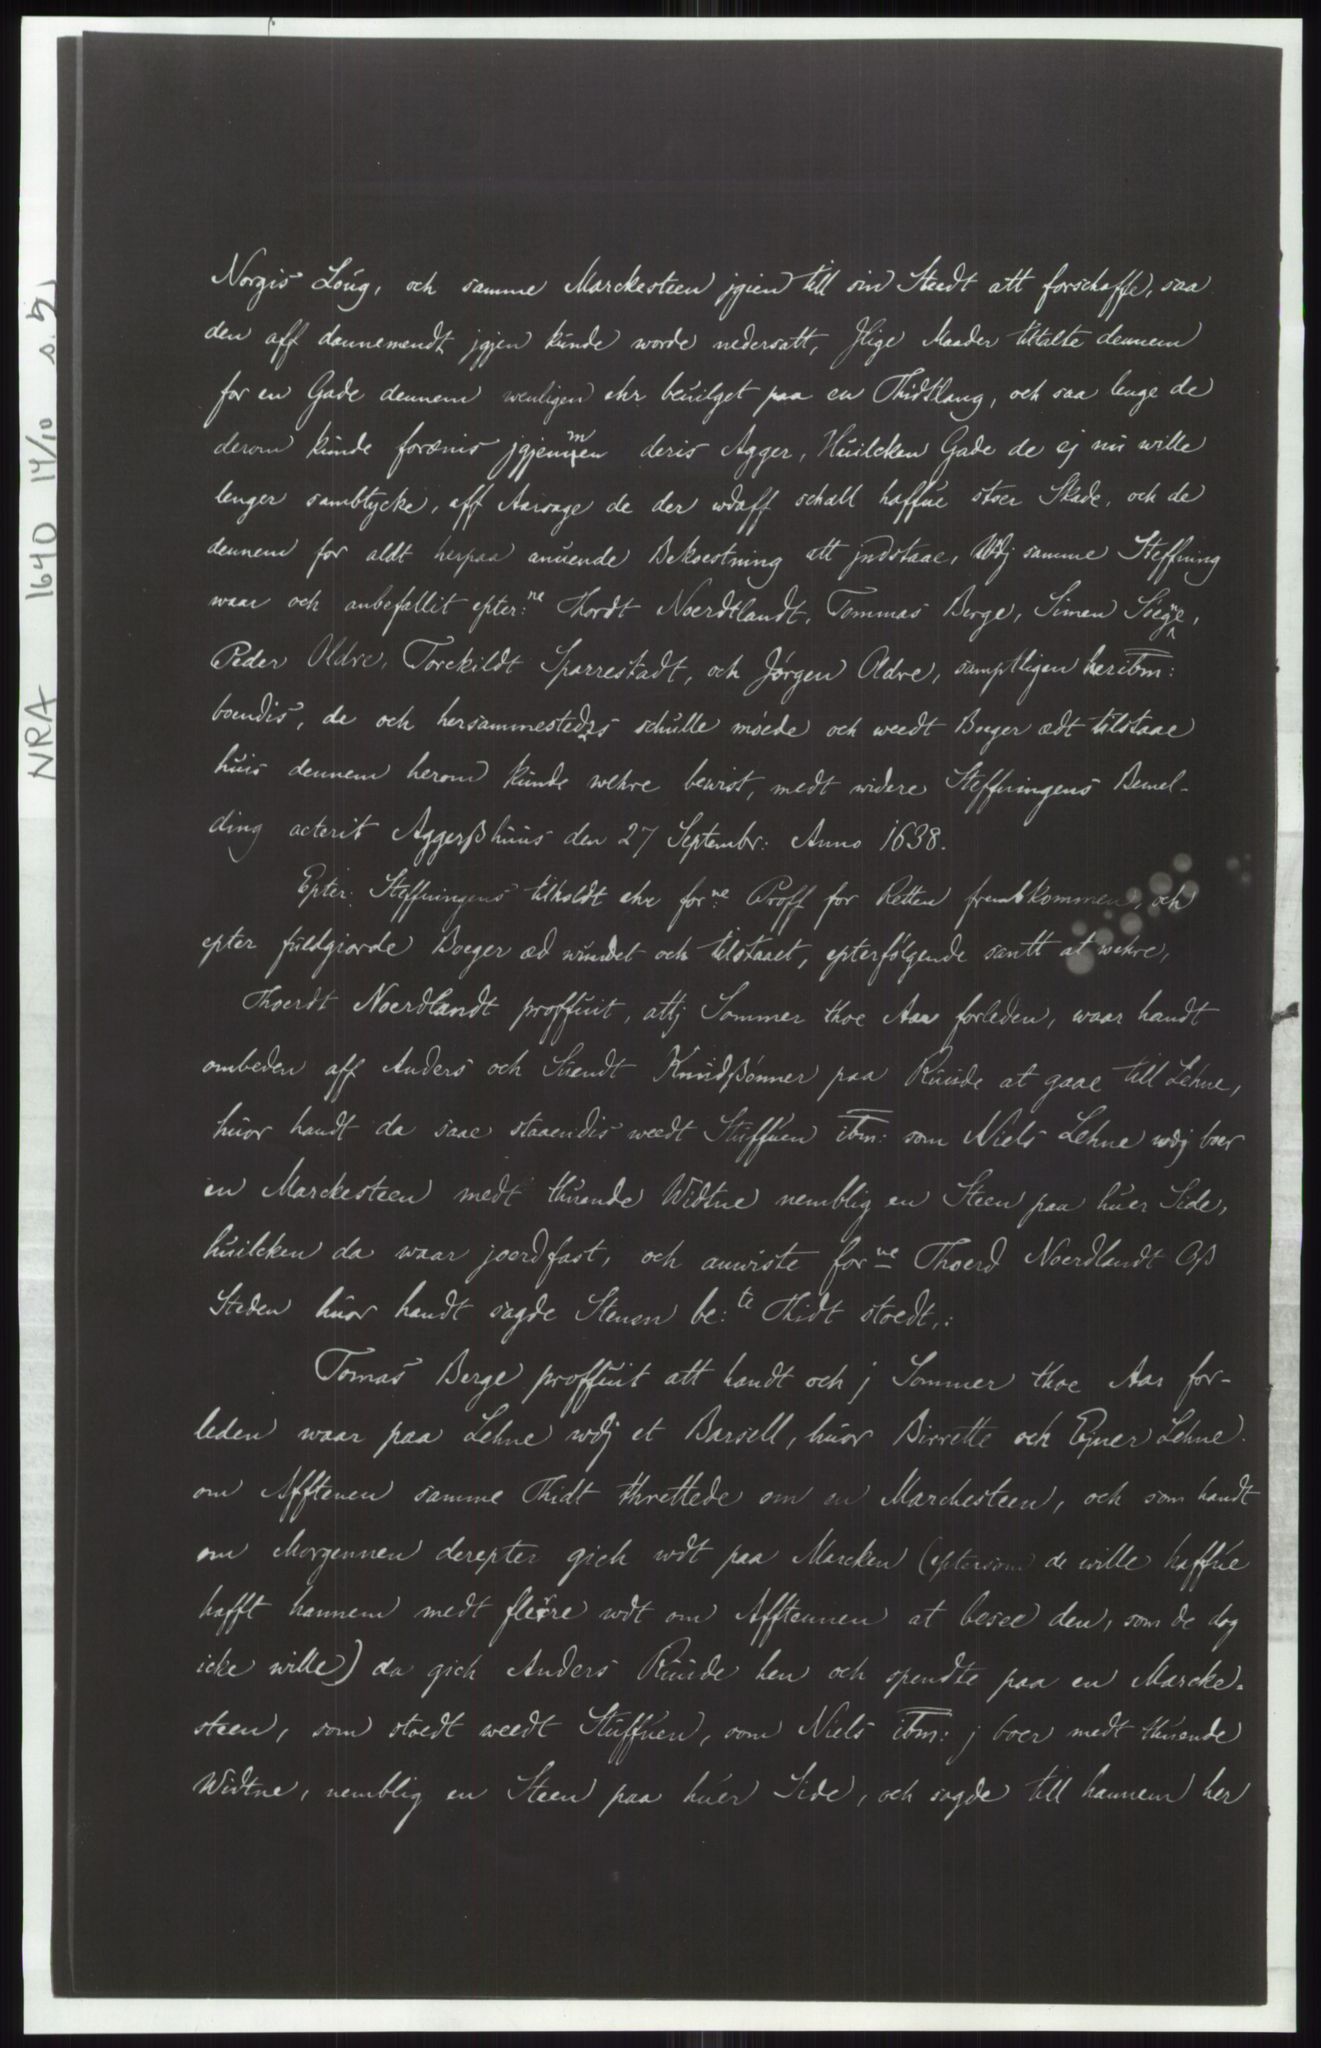 NRA 1640 14/10 s. 5,
Norgis Loug, och samme Marckesteen jgien till sin Stedt att forschaffe, saa
den aff dannemendt jgjen kunde worde nedersatt, Jlige Maader tiltalte dennem
for en Gade dennem wenligen ehr beuilget paa en Thidtlang, och saa lenge de
derom kunde forænis jgjennem deris Agger, Huilcken Gade de ej nu wille
lenger sambtycke, aff Aarsage de der wdaff schall haffue stoer Skade, och de
dennem for aldt herpaa anuende Bekoestning att jndstaae, Wdj samme Steffning
waar och anbefallit epter:ne Thordt Noerdtlandt, Tommas Berge, Simen
Peder Oldre, Torckildt Sparrestadt, och Jørgen Oldre, samptligen her ibm:
boendis, de och hersammestedzs schulle møede och weedt Boeger ædt tilstaae
huis dennem herom kunde wehre bewist, medt widere Steffningens Bemel-
ding acterit Aggerßhuus den 27 Septembr: Anno 1638.
Epter: Steffningens tilholdt ehr for:ne Proff for Retten frembkommen, och
epter fuldgiorde Boeger æd wundet och tilstaaet, epterfølgende santt at wehre,
Thoerdt Noerdlandt proffuit, attj Sommer thoe Aar forleden, waar handt
ombeden aff Anders och Suendt Knudßønner paa Ruude at gaae till Lehne,
huor handt da saae staaendis weedt Stuffuen ibm: som Niels Lehne wdj boer
en Marckesteen medt thuende Widtne nemblig en Steen paa huer Side,
huilcken da waar joerdfast, och anwiste for:ne Thoerd Noerdlandt Oß
Steden huor handt sagde Stenen be:te Thidt stoedt,:
Tomas Berge proffuit att handt och j Sommer thoe Aar for-
leden waar paa Lehne wdj et Barsell, huor Birrette och Ejner Lehne
om Afftenen samme Thidt threttede om en Marchesteen, och som handt
om Morgennen derepter gich wdt paa Marcken (eptersom de wille haffue
hafft hannem medt fleere wdt om Afftennen at besee den, som de dog
icke wille) da gich Anders Ruude hen och spendte paa en Marcke-
steen, som stoedt weedt Stuffuen, som Niels ibm: j boer medt thuende
Widtne, nemblig en Steen paa huer Side, och sagde till hannem her